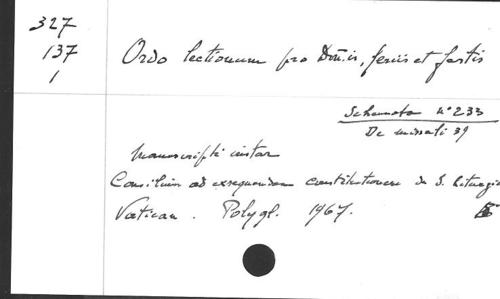 327
137
1
Ordo lectionum pro Dom̄.is, feriis et festis
Schemata n° 233
De missali 39
Manuscripti instar
Consilium ad exsequendam constitutionem de S. Liturgia
Vatican. Polygl. 1967.